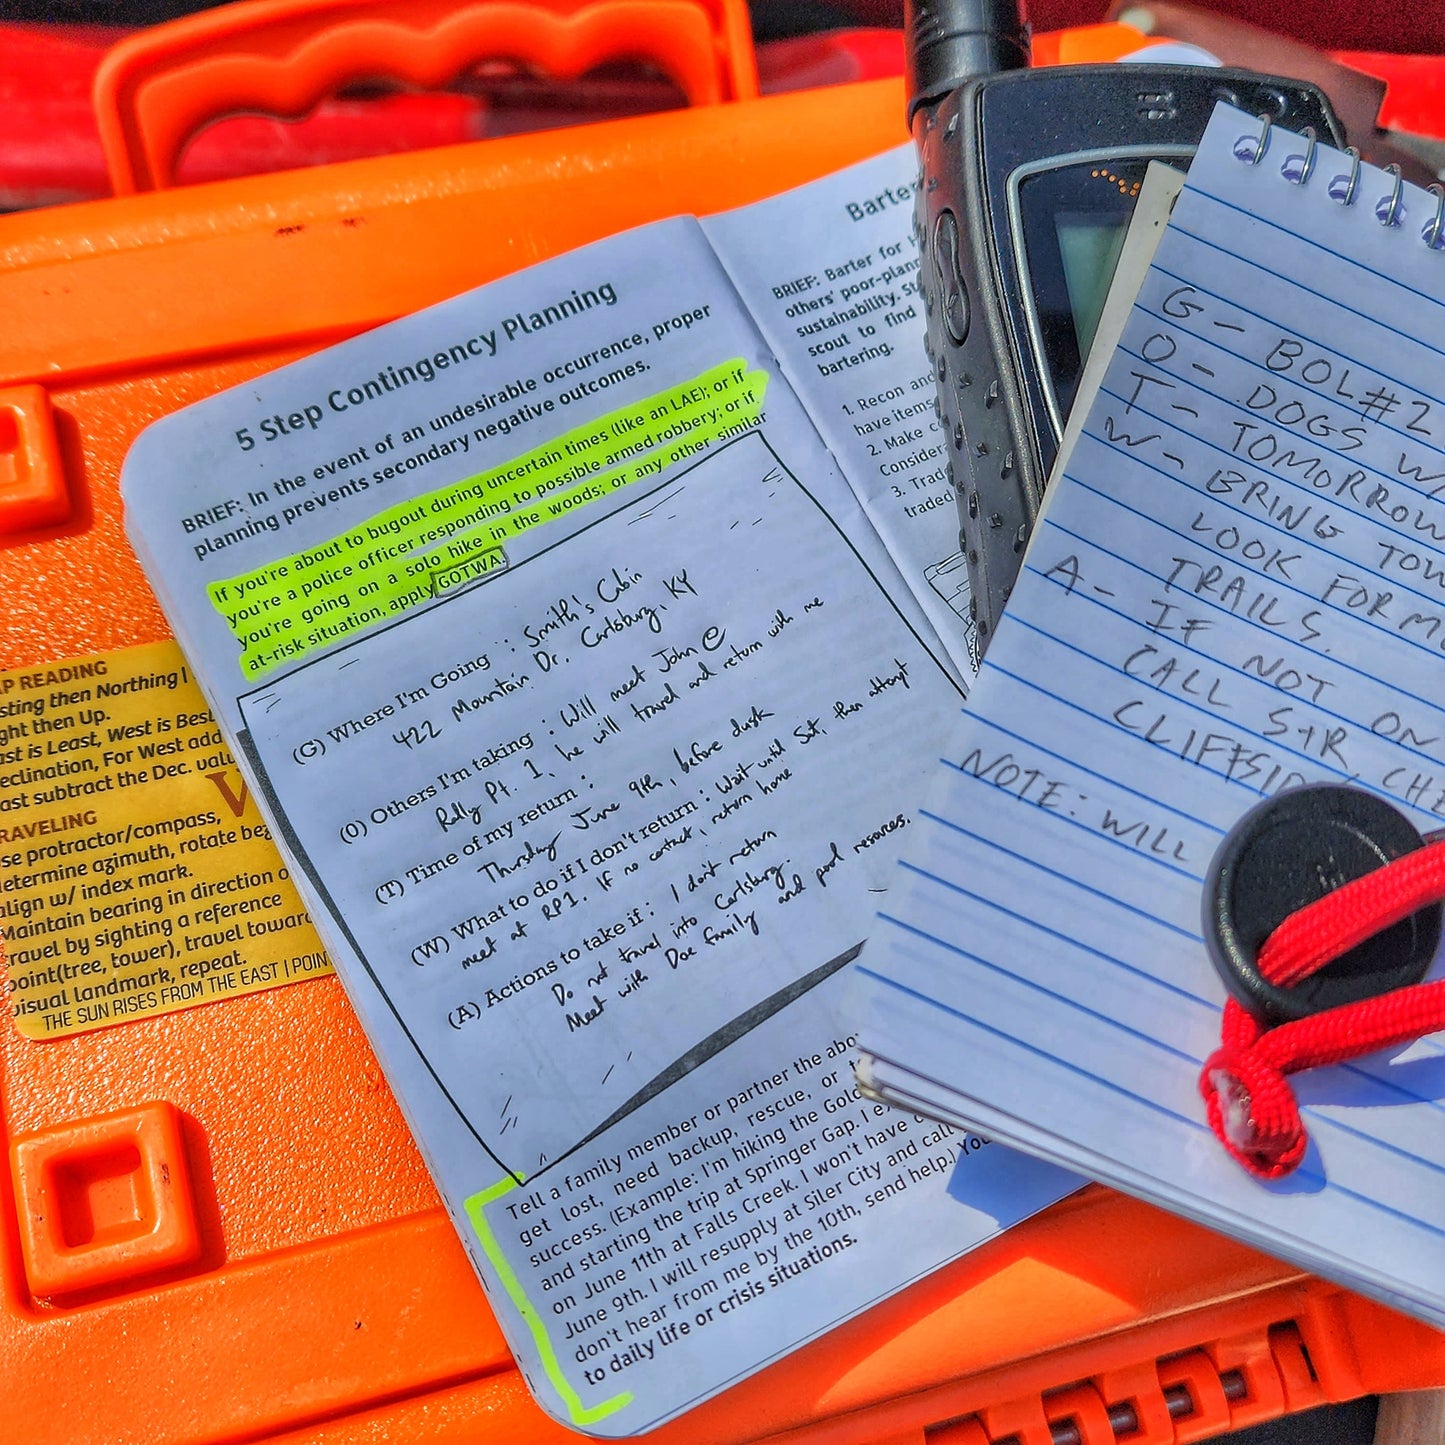 5 Step Contingency Planning
BRIEF: In the event of an undesirable occurrence, proper
planning prevents secondary negative outcomes.
If you're about to bugout during uncertain times (like an LAE); or if
you're a police officer responding to possible armed robbery; or if
you're going on a solo hike in the woods; or any other similar
at-risk situation, apply GOTWA.
(G) Where I'm Going : Smith's Cabin
422 Mountain Dr. Carlsburg, KY
(O) Others I'm taking : Will meet John @
Rally Pt. 1, he will travel and return with me
(T) Time of my return :
Thursday June 9th, before dusk
(W) What to do if I don't return : Wait until Sat, then attempt
meet at RP1. If no contact, return home
(A) Actions to take if : I don't return
Do not travel into Carlsburg.
Meet with Doe family and pool resources.
Tell a family member or partner the abo
get lost, need backup, rescue, or
success. (Example: I'm hiking the Gold
and starting the trip at Springer Gap. I
on June 11th at Falls Creek. I won't have
June 9th. I will resupply at Siler City and call
don't hear from me by the 10th, send help.) You
to daily life or crisis situations.
Barte
BRIEF: Barter for
others' poor-plann
sustainability.
scout to find
bartering.
1. Recon and
have items
2. Make
Consider
3. Trad
traded
G - BOL#2
O - DOGS W/
T - TOMORROW
W - BRING TOW
LOOK FOR
TRAILS.
A - IF NOT ON
CALL S+R, CHE
CLIFFSID
NOTE: WILL
P READING
sting then Northing |
ght then Up.
ast is Least, West is Best
eclination, For West add
ast subtract the Dec. valu
RAVELING
se protractor/compass,
etermine azimuth, rotate bez
lign w/ index mark.
Maintain bearing in direction o
ravel by sighting a reference
point(tree, tower), travel towar
visual landmark, repeat.
THE SUN RISES FROM THE EAST | POIN